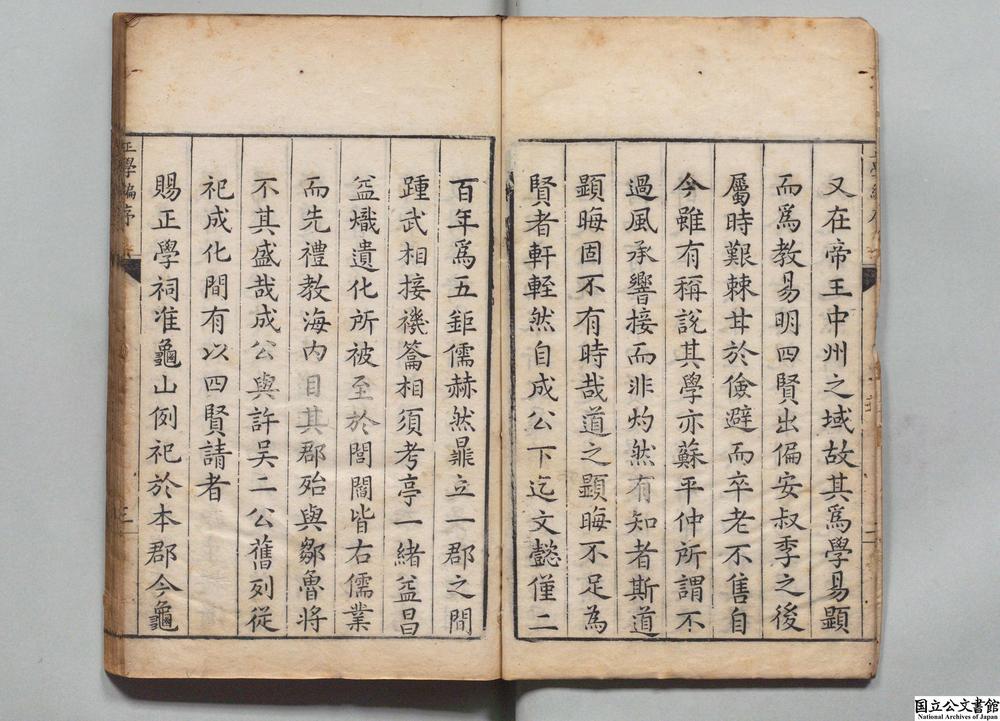 又在帝王中州之域故其爲學易顯
而爲教易明四賢出偏安叔季之後
屬時艱棘甘於儉避而卒老不售自
今雖有稱說其學亦蘇平仲所謂不
過風承響接而非灼然有知者斯道
顯晦固不有時哉道之顯晦不足為
賢者軒輊然自成公下迄文懿僅二
百年爲五鉅儒赫然鼎立一郡之間
踵武相接禨籥相須考亭一緒益昌
益熾遺化所被至於閭閻皆右儒業
而先禮教海内目其郡殆與鄒魯將
不其盛哉成公與許吳二公舊列從
祀成化間有以四賢請者
賜正學祠准龜山例祀於本郡今龜
正學編序
三
国立公文書館
National Archives of Japan